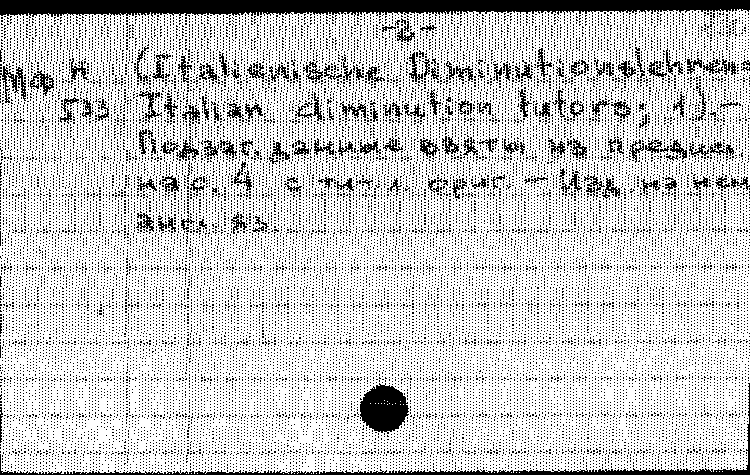 -2-
МФ Н (Italienische Diminutionslehren=
533 Italian diminution tutors; 1).—
Подзаг. данные взяты из предисл.
на с. 4 с тит. л. ориг. — Изд. на нем.
англ. яз.